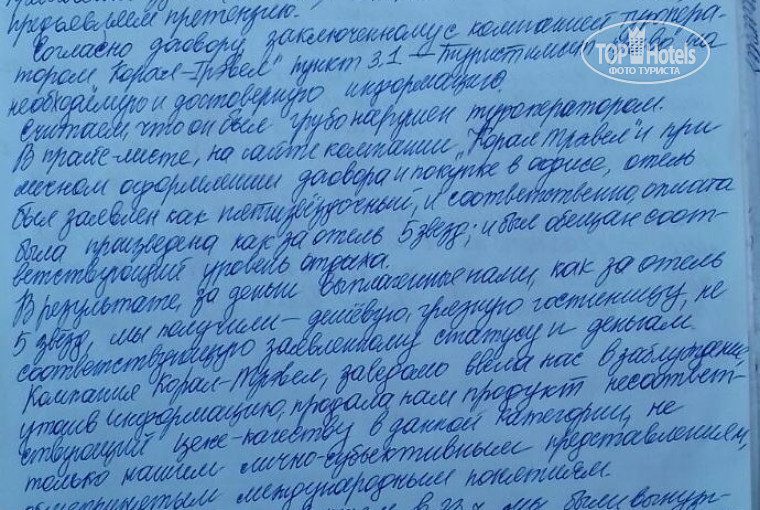 предъявляем претензию.
Согласно договору, заключенному с компанией туропера-
тором "Корал-Трэвел" пункт 3.1 — турист имеет право на
необходимую и достоверную информацию.
Считаем, что он был грубо нарушен туроператором.
В прайс-листе, на сайте компании "Корал Трэвел" и при
личном оформлении договора и покупке в офисе, отель
был заявлен как пятизвёздочный, и соответственно, оплата
была произведена как за отель 5 звезд; и был обещан соот-
ветствующий уровень отдыха.
В результате, за деньги выплаченные нами, как за отель
5 звёзд, мы получили — дешёвую, грязную гостиницу, не
соответствующую заявленному статусу и деньгам.
Компания Корал-Трэвел, заведомо ввела нас в заблуждение,
утаив информацию, продала нам продукт несоответ-
ствующий цене-качеству в данной категории, не
только нашим лично-субъективным представлениям,
общепринятым международным понятиям.
в 23 ч. мы были вынуж-
TOP Hotels
ФОТО ТУРИСТА